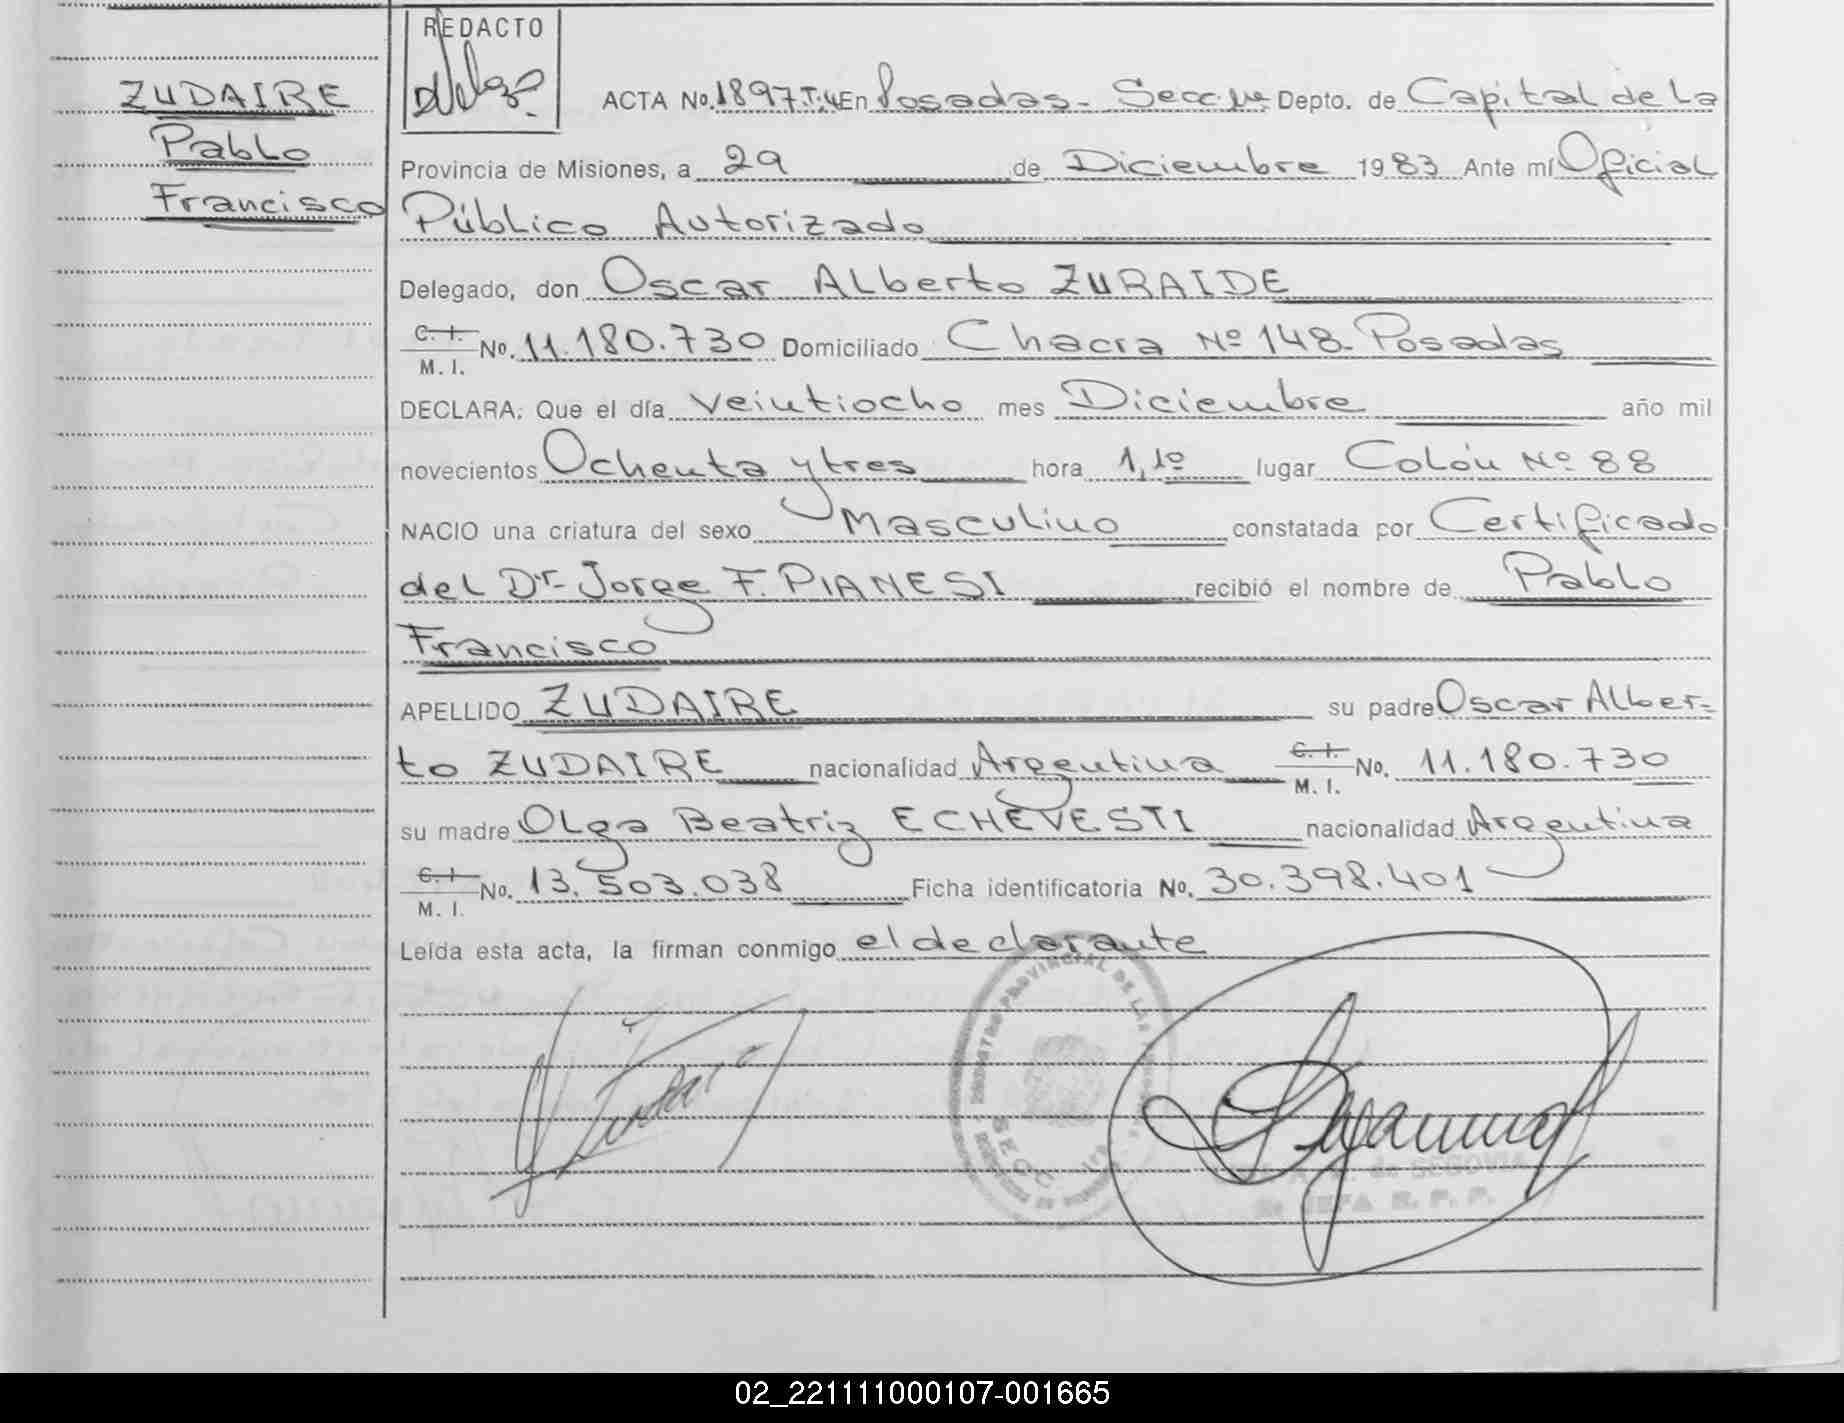 ZUDAIRE
Pablo
Francisco
REDACTO
ACTA No. 1897 T:4 En Posadas - Secc. Depto. de Capital de La
Provincia de Misiones, a 29 de Diciembre 1983 Ante mí Oficial
Público Autorizado
Delegado, don Oscar Alberto ZURAIDE
C. I.
M. I. No. 11.180.730 Domiciliado Chacra Nº 148 - Posadas
DECLARA: Que el día veintiocho mes Diciembre año mil
novecientos Ochenta y tres hora 1,10 lugar Colón Nº 88
NACIO una criatura del sexo Masculino constatada por Certificado
del Dr. Jorge F. PIANESI recibió el nombre de Pablo
Francisco
APELLIDO ZUDAIRE su padre Oscar Alber-
to ZUDAIRE nacionalidad Argentina C. I.
M. I. No. 11.180.730
su madre Olga Beatriz ECHEVESTI nacionalidad Argentina
C. I.
M. I. No. 13.503.038 Ficha identificatoria No. 30.398.401
Leída esta acta, la firman conmigo el declarante
PROVINCIAL DE LAS
SECC.
de SEGOVIA
JEFA R. P. P.
02_221111000107-001665